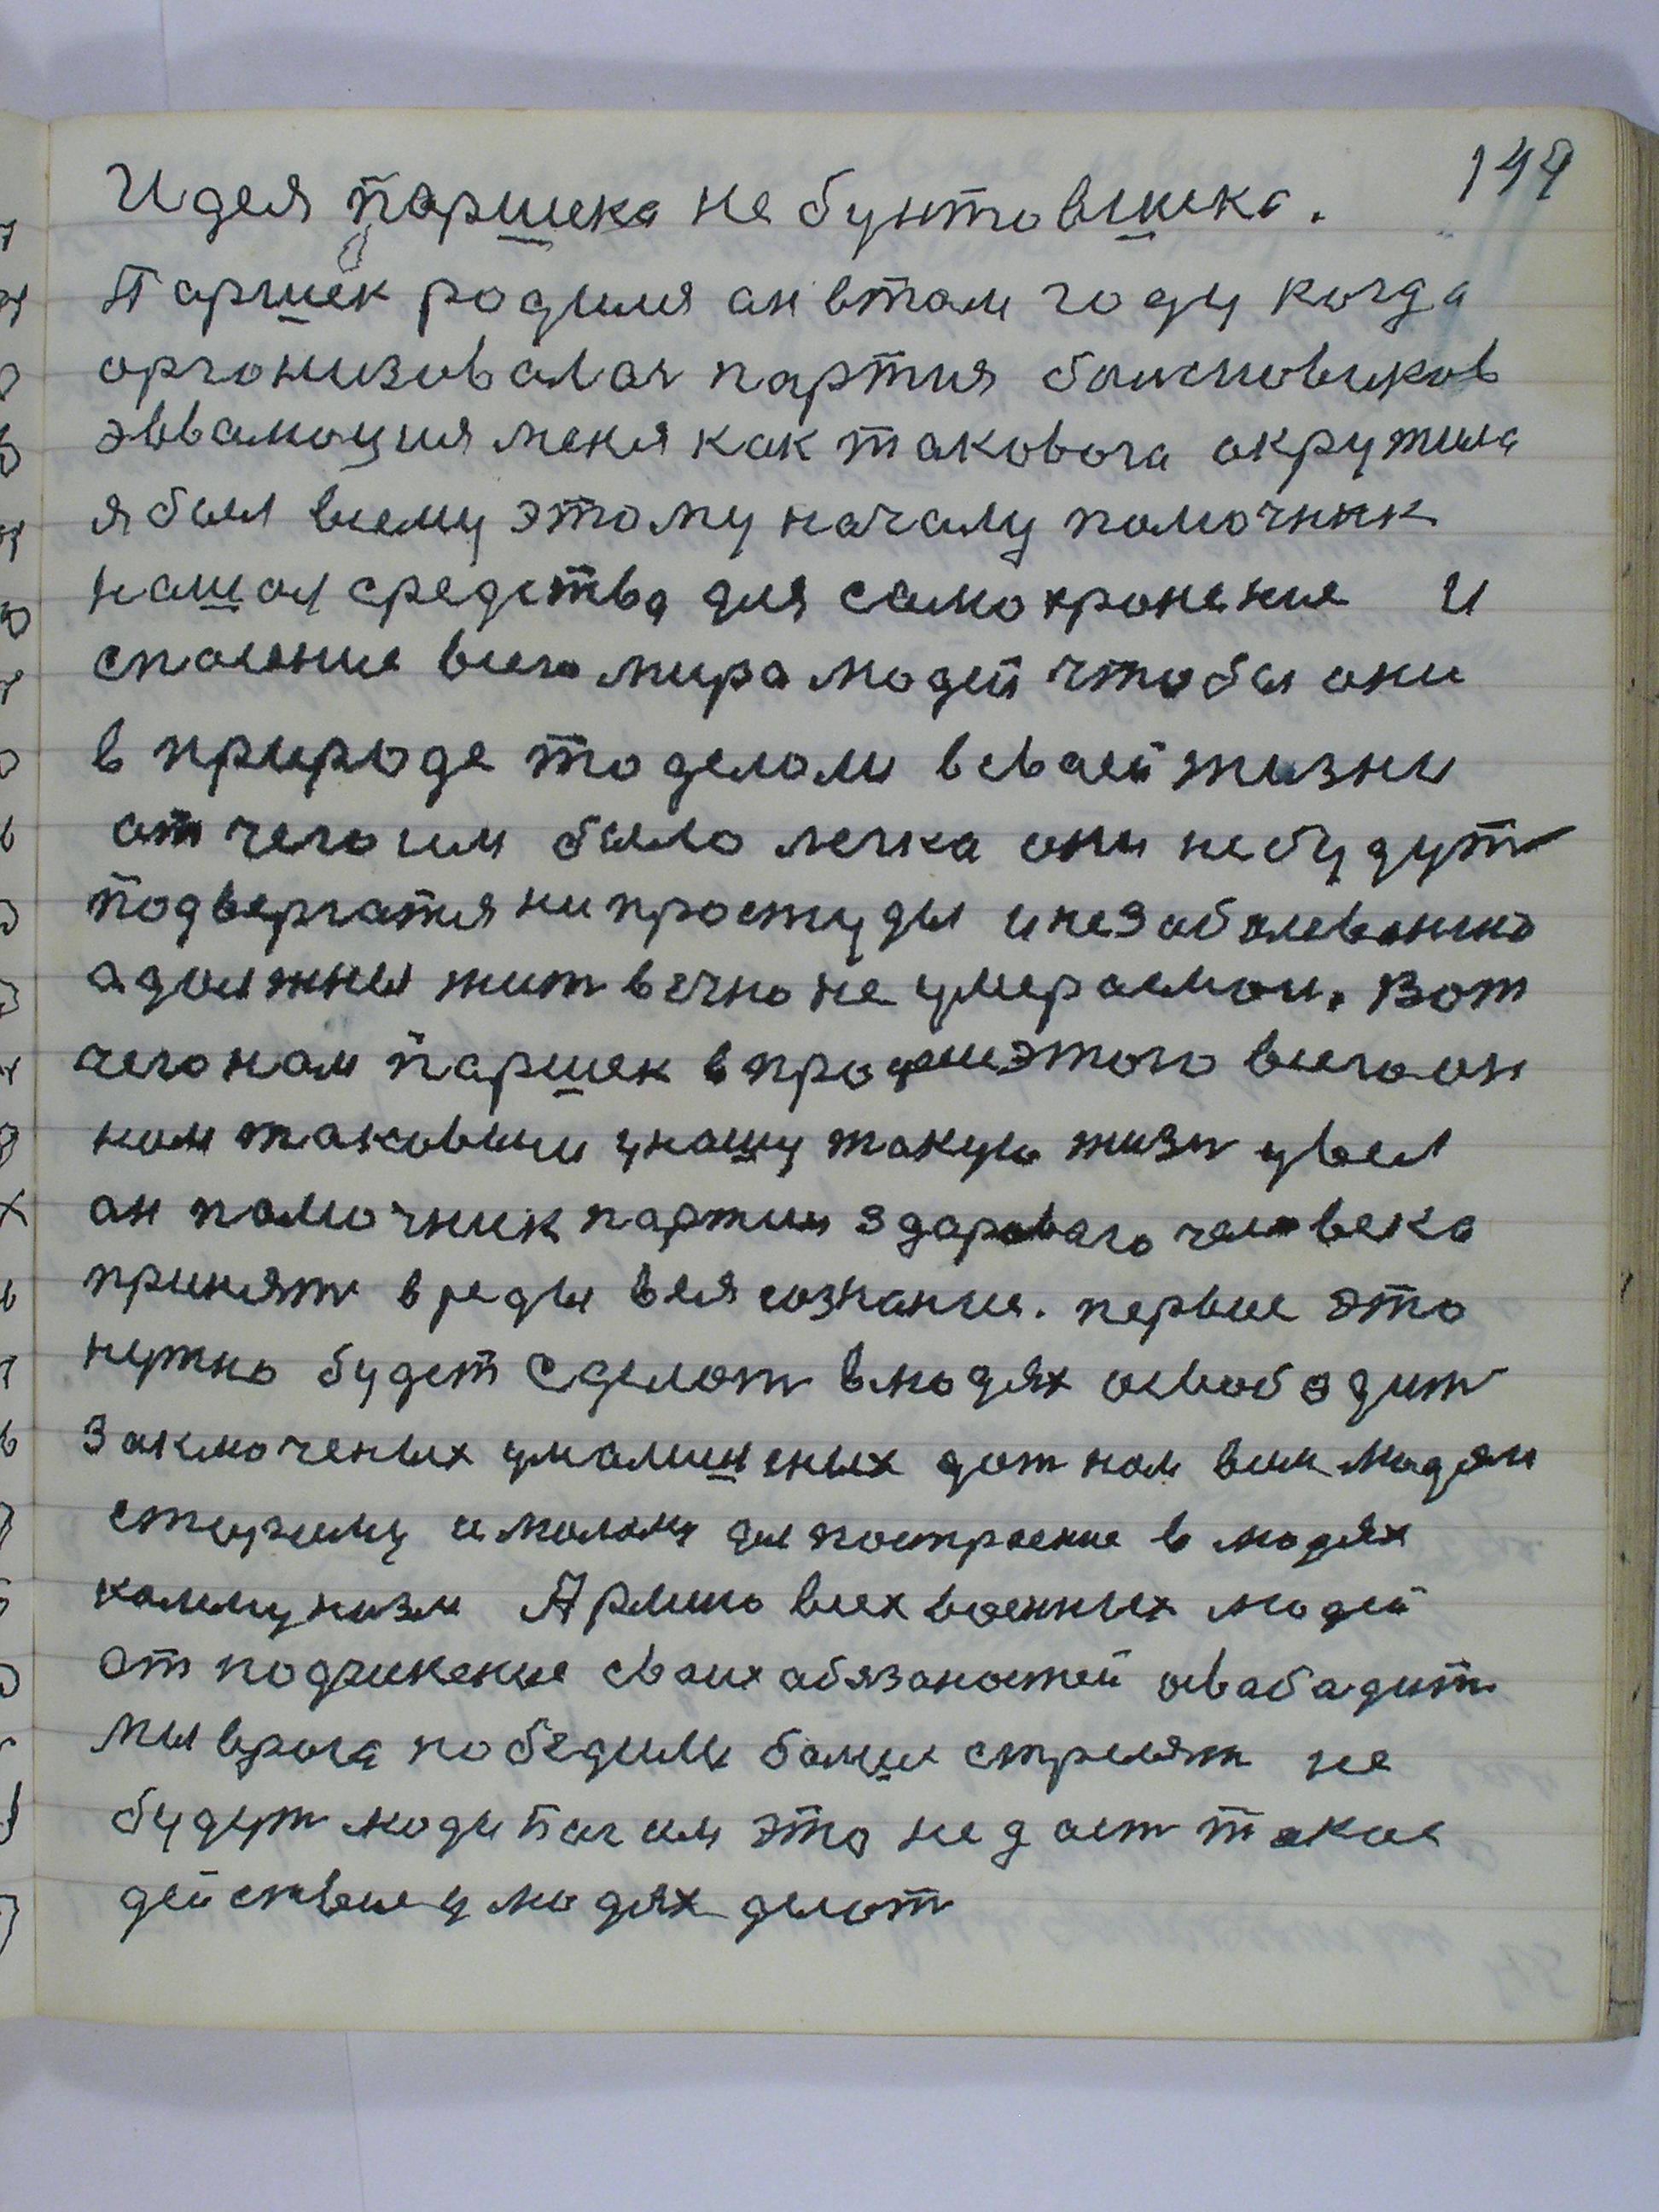 149
Идея паршека не бунтовшика.
Паршек родился ан втам году когда
оргонизовалася партия
эввалюция меня как таковога акружила
я был всему этому началу помочник
нашол средства для само хронения и
спасение всего мира людей чтобы они
в природе то делали в сваей жизни
ат чего им было легка они небудут
подвергатся ни простуды и не заболеванию
а должны жит вечно не умераемои. Вот
чего нам паршек в про этого всего он
нам таковыми у нашу такую жизн увел
ан помочник партии здаровага человека
принят в реды вся сознания. первое это
нужно будет сделат в людях освободит
заключеных умалишеных дат нам всим людям
старому и малому для построение в людях
коммунизм Армию всех военных людей
от подчинение сваих абязаностей асвабадит
мы врага победим болше стрелят не
будут люди бог им это не даст такое
действие у людях делат